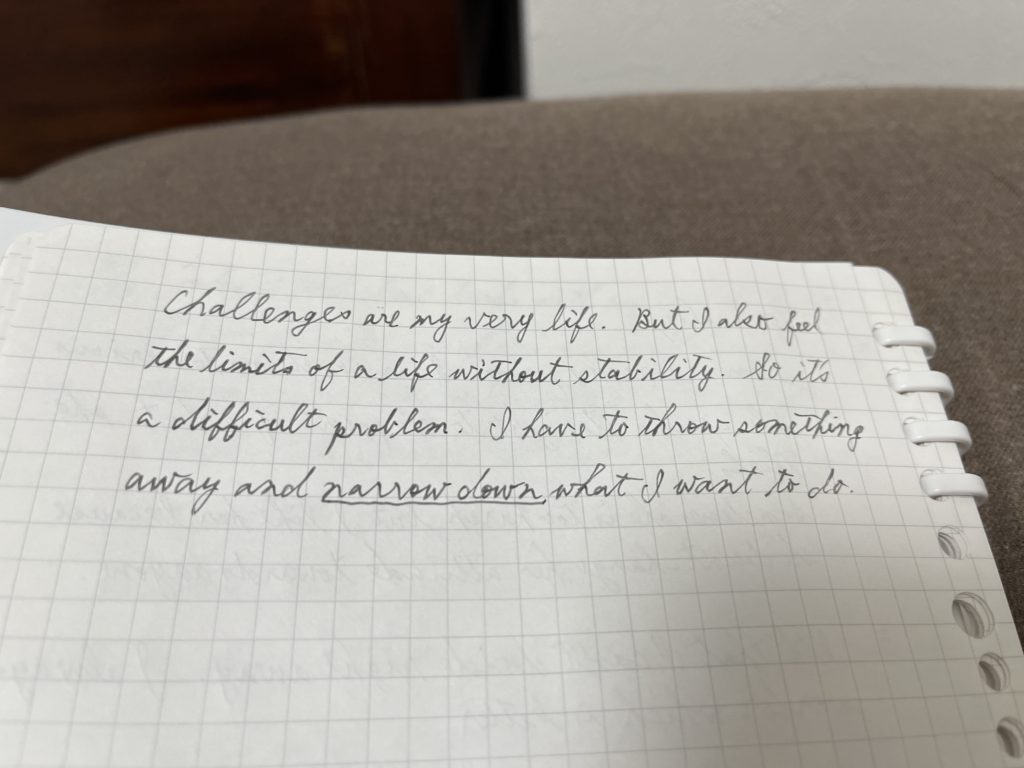 Challenges are my very life. But I also feel
the limits of a life without stability. So it's
a difficult problem. I have to throw something
away and narrow down what I want to do.